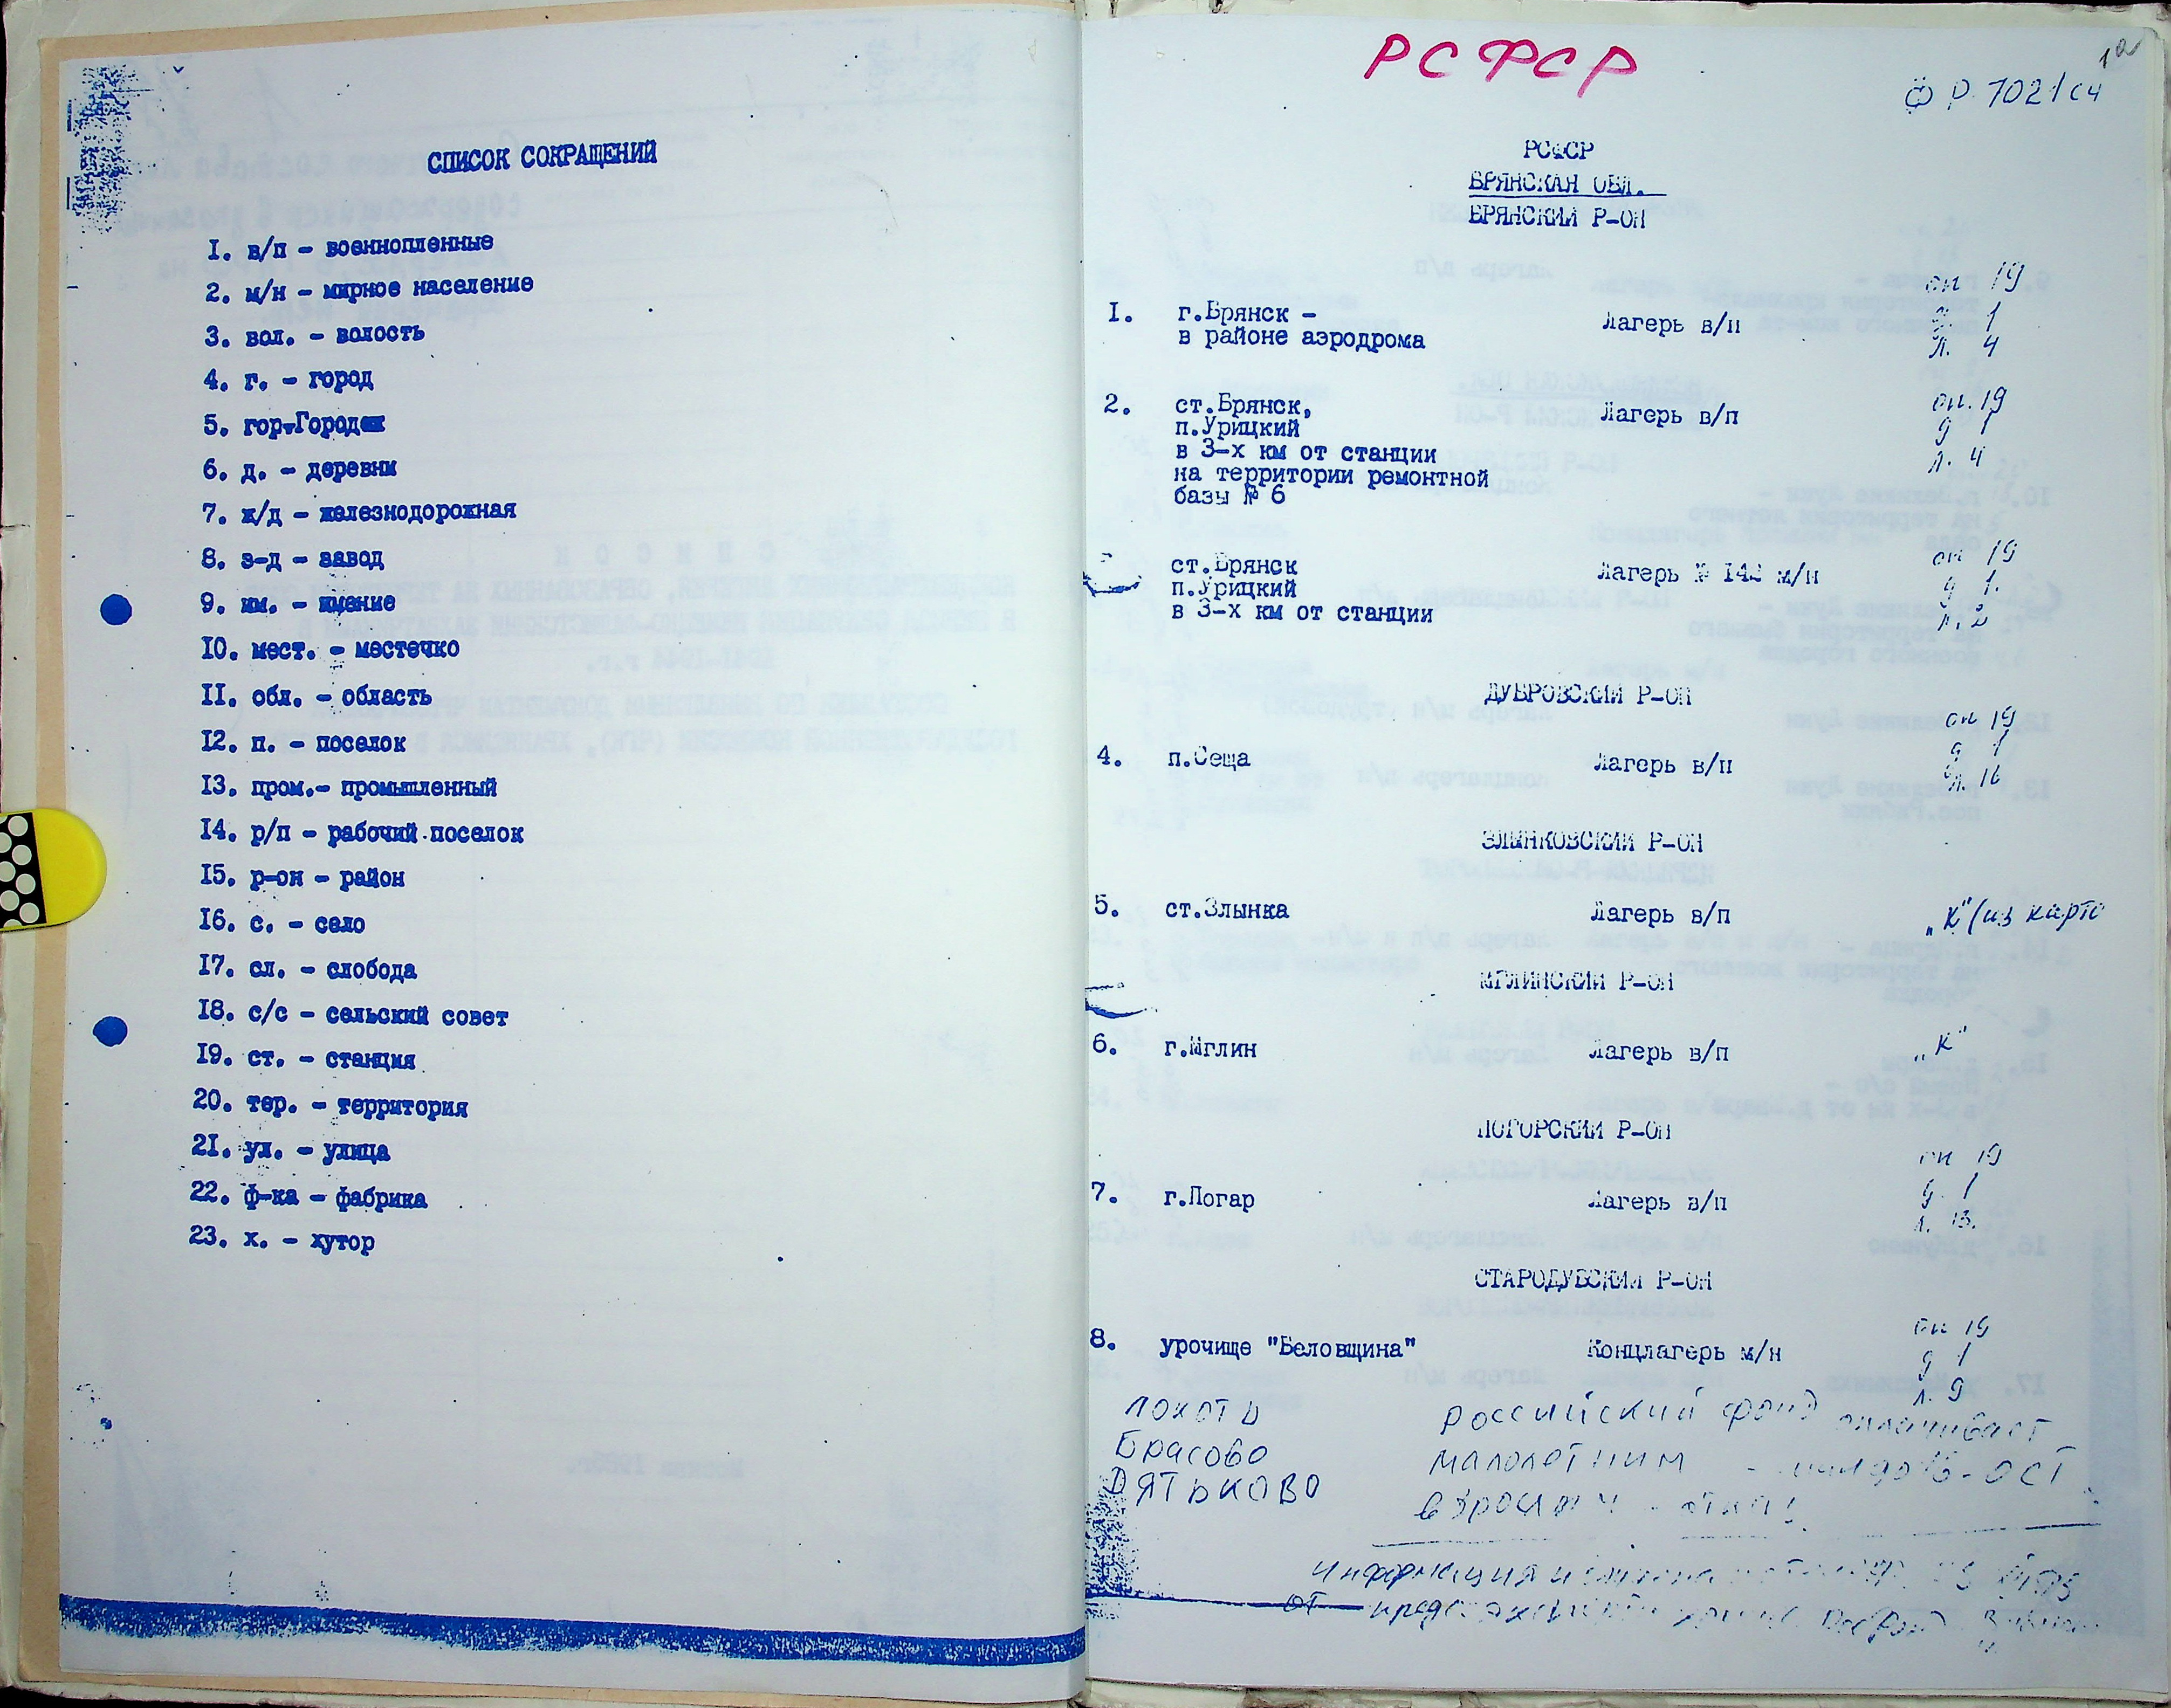 СПИСОК СОКРАЩЕНИЙ
I. в/п - военнопленные
2. м/н - мирное население
3. вол. - волость
4. г. - город
5. гор.Городок
6. д. - деревни
7. ж/д - железнодорожная
8. з-д - завод
9. им. - имение
I0. мест. - местечко
II. обл. - область
I2. п. - поселок
I3. пром.- промышленный
I4. р/п - рабочий поселок
I5. р-он - район
I6. с. - село
I7. сл. - слобода
I8. с/с - сельский совет
I9. ст. - станция
20. тер. - территория
2I. ул. - улица
22. ф-ка - фабрика
23. х. - хутор
РСФСР
1а
Ф Р 7021 сч
РСФСР
БРЯНСКАЯ ОБЛ.
БРЯНСКИЙ Р-ОН
оп 19
I. г.Брянск - Лагерь в/п д. 1
в районе аэродрома л. 4
2. ст.Брянск, Лагерь в/п оп. 19
п.Урицкий д 1
в 3-х км от станции л. 4
на территории ремонтной
базы № 6
ст.Брянск Лагерь № I42 м/н оп 19
п.Урицкий д 1.
в 3-х км от станции л. 2
ДУБРОВСКИЙ Р-ОН
оп 19
4. п.Сеща Лагерь в/п д 1
л. 16
ЗЛЫНКОВСКИЙ Р-ОН
5. ст.Злынка Лагерь в/п „К" (из карто
МГЛИНСКИЙ Р-ОН
6. г.Мглин Лагерь в/п „К"
ПОГОРСКИЙ Р-ОН
оп 19
7. г.Погар Лагерь в/п д. 1
л. 13.
СТАРОДУБСКИЙ Р-ОН
оп 19
8. урочище "Беловщина" Концлагерь м/н д 1
л. 9
Локоть
Брасово
Дятьково
Российский фонд оплачивает
малолетним - ост
информация
от